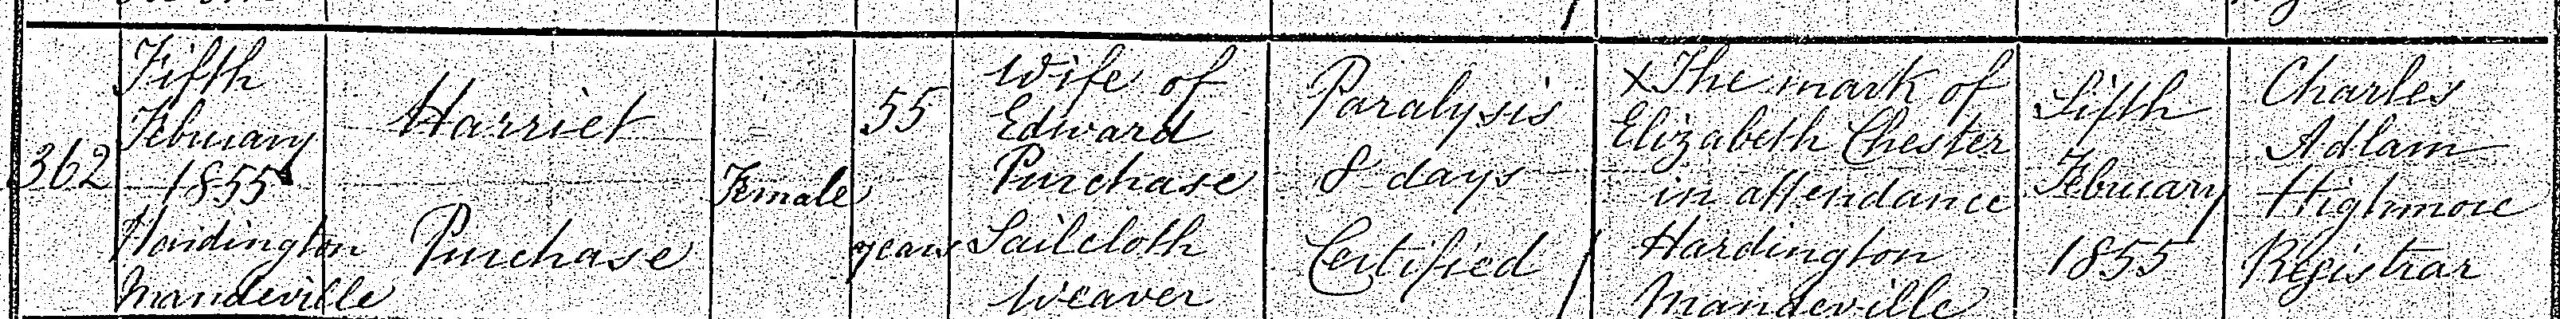 362
Fifth
February
1855
Hardington
Mandeville
Harriet
Purchase
Female
55
years
Wife of
Edward
Purchase
Sailcloth
Weaver
Paralysis
8 days
Certified
X The mark of
Elizabeth Chester
in attendance
Hardington
Mandeville
Fifth
February
1855
Charles
Adlam
Highmore
Registrar